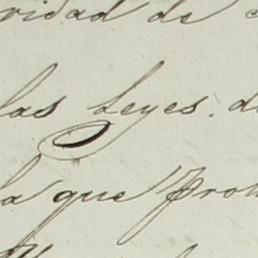 ridad de
las Leyes. d
la que Proh